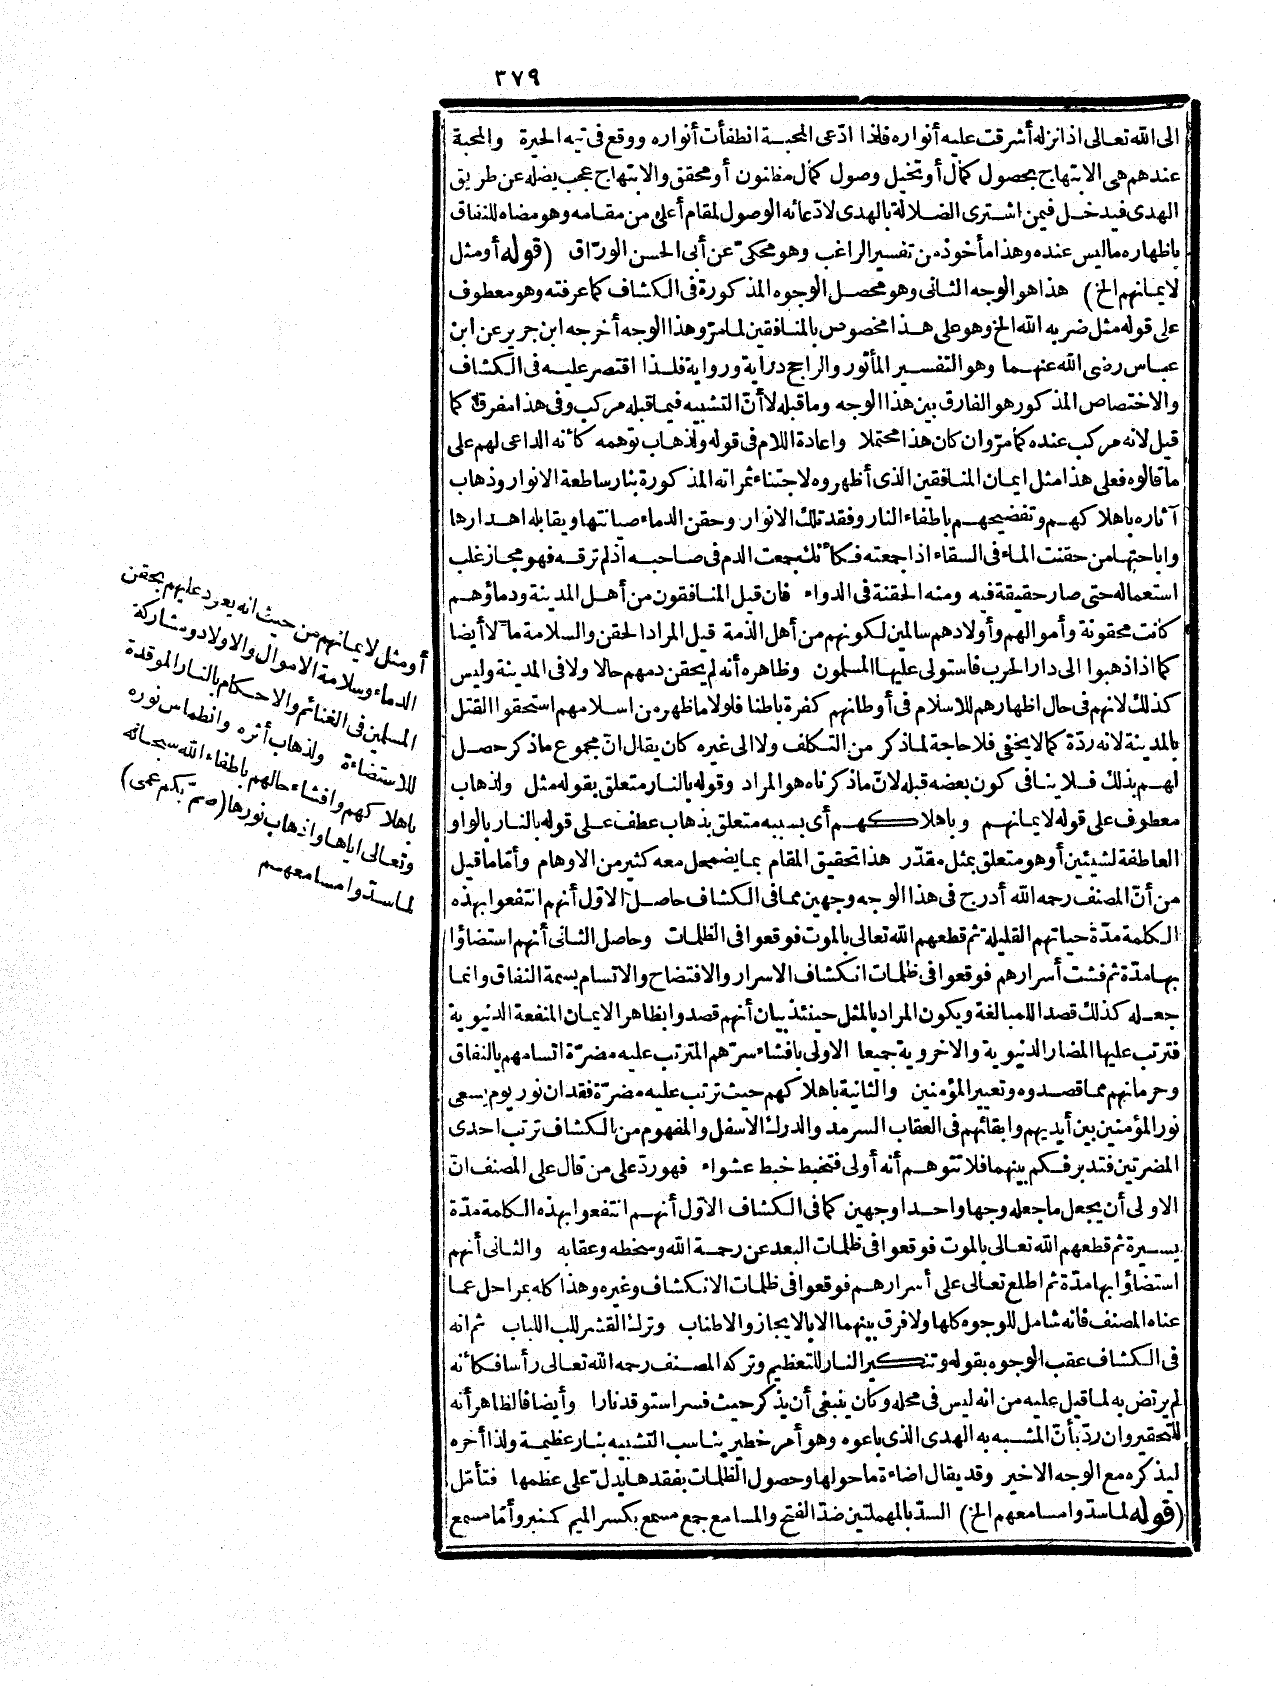 ٣٧٩
الى الله تعالى اذا نزله أشرقت عليه أنواره فلذا ادّعى المحبة انطفأت أنواره ووقع فى تيه الحيرة والمحبة
عندهم هى الابتهاج بحصول كمال أو تخيل وصول كمال مظنون أو محقق والابتهاج عجب يضله عن طريق
الهدى فيدخل فيمن اشترى الضلالة بالهدى لادّعائه الوصول لمقام أعلى من مقامه وهو مضاه للنفاق
باظهاره ما ليس عنده وهذا مأخوذ من تفسير الراغب وهو محكىّ عن أبى الحسن الورّاق (قوله أو مثل
لايمانهم الخ) هذا هو الوجه الثانى وهو محصل الوجوه المذكورة فى الكشاف كما عرفته وهو معطوف
على قوله مثل ضربه الله الخ وهو على هذا مخصوص بالمنافقين لما مرّ وهذا الوجه أخرجه ابن جرير عن ابن
عباس رضى الله عنهما وهو التفسير المأثور والراجح دراية ورواية فلذا اقتصر عليه فى الكشاف
والاختصاص المذكور هو الفارق بين هذا الوجه وما قبله لا أنّ التشبيه فيما قبله مركب وفى هذا مفرق كما
قيل لانه مركب عنده كما مرّ وان كان هذا محتملا واعادة اللام فى قوله ولذهاب توهمه كأنه الداعى لهم على
ما قالوه فعلى هذا مثل ايمان المنافقين الذى أظهروه لاجتناء ثمراته المذكورة بنار ساطعة الانوار وذهاب
آثاره باهلاكهم وتفضيحهم باطفاء النار وفقد تلك الانوار وحقن الدماء صيانتها ويقابله اهدارها
واباحتها من حقنت الماء فى السقاء اذا جمعته فكأنك جمعت الدم فى صاحبه اذ لم ترقه فهو مجاز غلب
استعماله حتى صار حقيقة فيه ومنه الحقنة فى الدواء فان قيل المنافقون من أهل المدينة ودماؤهم
كانت محقونة وأموالهم وأولادهم سالمين لكونهم من أهل الذمة قيل المراد الحقن والسلامة مآلا أيضا
كما اذا ذهبوا الى دار الحرب فاستولى عليها المسلمون وظاهره أنه لم يحقن دمهم حالا ولا فى المدينة وليس
كذلك لانهم فى حال اظهارهم للاسلام فى أوطانهم كفرة باطنا فلولا ما ظهر من اسلامهم استحقوا القتل
بالمدينة لانه ردّة كما لا يخفى فلا حاجة لما ذكر من التكلف ولا الى غيره كان يقال انّ مجموع ما ذكر حصل
لهم بذلك فلا ينافى كون بعضه قبله لانّ ما ذكرناه هو المراد وقوله بالنار متعلق بقوله مثل ولذهاب
معطوف على قوله لايمانهم وباهلاكهم أى بسببه متعلق بذهاب عطف على قوله بالنار بالواو
العاطفة لشيئين أو هو متعلق بمثل مقدّر هذا تحقيق المقام بما يضمحل معه كثير من الاوهام وأمّا ما قيل
من أنّ المصنف رحمه الله أدرج فى هذا الوجه وجهين مما فى الكشاف حاصل الاوّل أنهم انتفعوا بهذه
الكلمة مدّة حياتهم القليلة ثم قطعهم الله تعالى بالموت فوقعوا فى الظلمات وحاصل الثانى أنهم استضاؤا
بها مدّة ثم فشت أسرارهم فوقعوا فى ظلمات انكشاف الاسرار والافتضاح والاتسام بسمة النفاق وانما
جعله كذلك قصدا للمبالغة ويكون المراد بالمثل حينئذ بيان أنهم قصدوا بظاهر الايمان المنفعة الدنيوية
فترتب عليها المضار الدنيوية والاخروية جميعا الاولى بافشاء سرّهم المترتب عليه مضرّة اتسامهم بالنفاق
وحرمانهم مما قصدوه وتعيير المؤمنين والثانية باهلاكهم حيث ترتب عليه مضرّة فقدان نور يوم يسعى
نور المؤمنين بين أيديهم وابقائهم فى العقاب السرمد والدرك الاسفل والمفهوم من الكشاف ترتب احدى
المضرتين فتدبر فكم بينهما فلا تتوهم أنه أولى فتخبط خبط عشواء فهو ردّ على من قال على المصنف انّ
الاولى أن يجعل ما جعله وجها واحدا وجهين كما فى الكشاف الاوّل أنهم انتفعوا بهذه الكلمة مدّة
يسيرة ثم قطعهم الله تعالى بالموت فوقعوا فى ظلمات البعد عن رحمة الله وسخطه وعقابه والثانى أنهم
استضاؤا بها مدّة ثم اطلع تعالى على أسرارهم فوقعوا فى ظلمات الانكشاف وغيره وهذا كله بمراحل عما
عناه المصنف فانه شامل للوجوه كلها ولا فرق بينهما الا بالايجاز والاطناب وترك القشر للب اللباب ثم انه
فى الكشاف عقب الوجوه بقوله وتنكير النار للتعظيم وتركه المصنف رحمه الله تعالى رأسا فكأنه
لم يرتض به لما قيل عليه من انه ليس فى محله وكان ينبغى أن يذكر حيث فسر استوقد نارا وأيضا فالظاهر أنه
للتحقير وان ردّ بأنّ المشبه به الهدى الذى باعوه وهو أمر خطير يناسب التشبيه بنار عظيمة ولذا أخره
ليذكره مع الوجه الاخير وقد يقال اضاءة ما حولها وحصول الظلمات بفقدها يدلّ على عظمها فتأمّل
(قوله لما سدّوا مسامعهم الخ) السدّ بالمهملتين ضدّ الفتح والمسامع جمع مسمع بكسر الميم كمنبر وأمّا مسمع
أو مثل لايمانهم من حيث انه يعود عليهم بحقن
الدماء وسلامة الاموال والاولاد ومشاركة
المسلمين فى الغنائم والاحكام بالنار الموقدة
للاستضاءة ولذهاب أثره وانطماس نوره
باهلاكهم وافشاء حالهم باطفاء الله سبحانه
وتعالى اياها واذهاب نورها (صمّ بكم عمى)
لما سدّوا مسامعهم